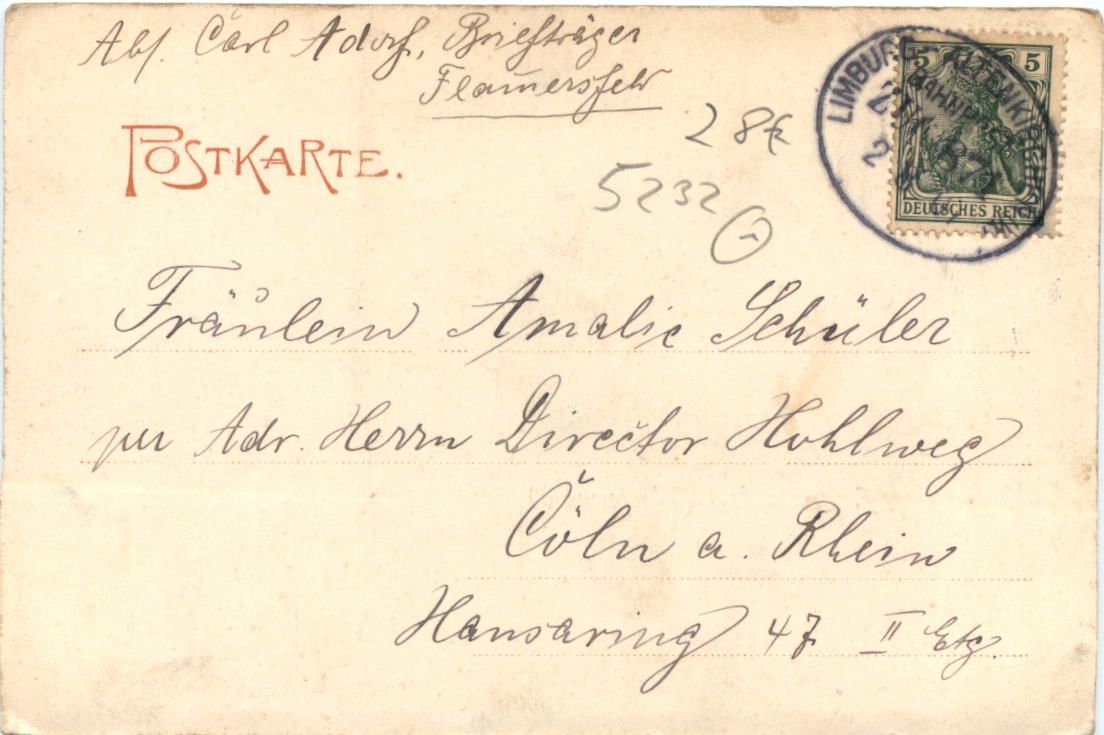 Abs. Carl Adorf, Briefträger
Flamersfeld
28€
5232
POSTKARTE.
LIMBURG ALTENKIRCHEN
BAHNPOST
ZUG
5 5
DEUTSCHES REICH
Fräulein Amalie Schüler
per Adr. Herrn Director Hohlweg
Cöln a. Rhein
Hansaring 47 II Etg.